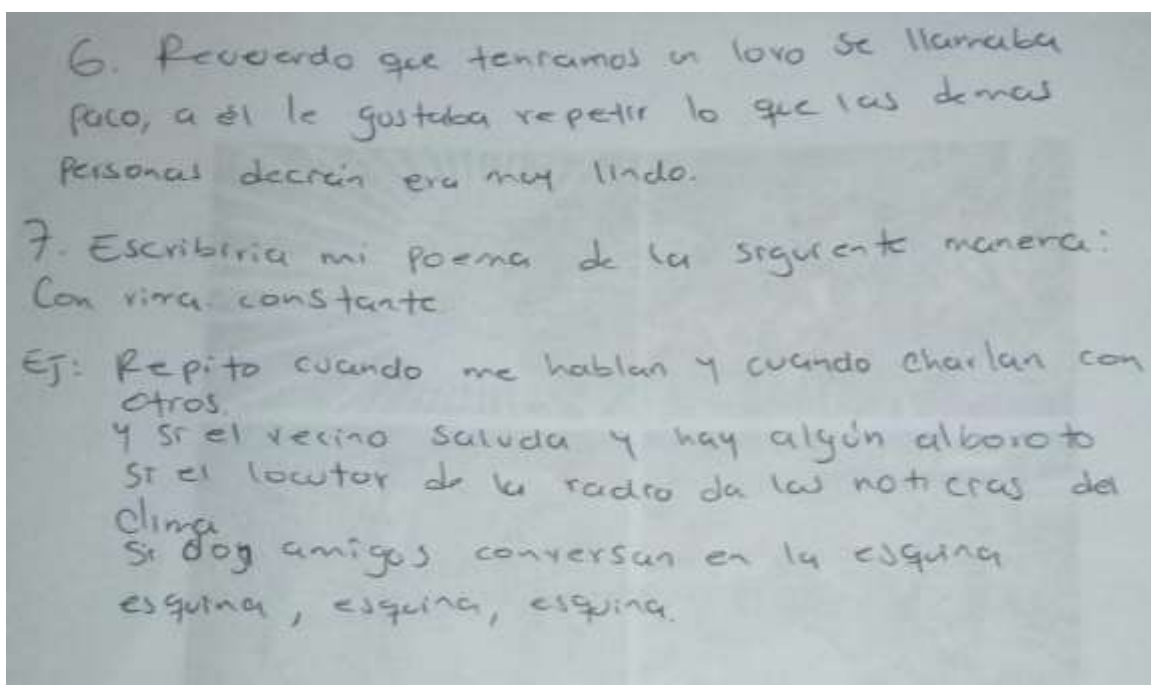 6. Recuerdo que teníamos un loro se llamaba
paco, a él le gustaba repetir lo que las demas
personas decían era muy lindo.
7. Escribiria mi poema de la siguiente manera:
Con rima constante
EJ: Repito cuando me hablan y cuando charlan con
otros.
y si el vecino saluda y hay algún alboroto
si el locutor de la radio da las noticias del
clima
si dos amigos conversan en la esquina
esquina, esquina, esquina.